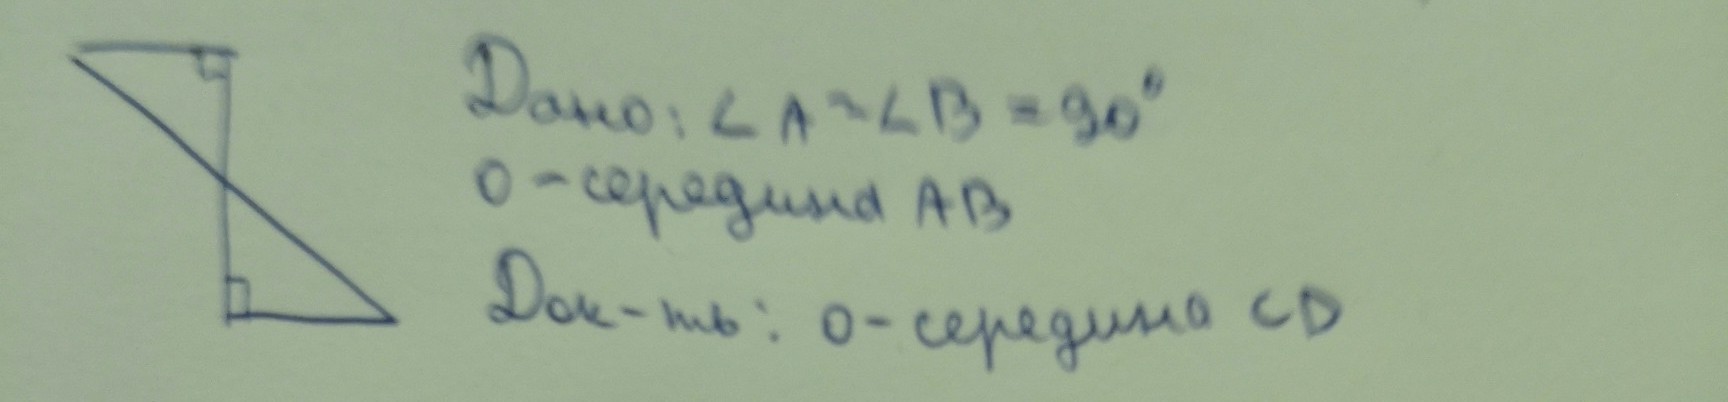 Дано: ∠A=∠B=90°
O-середина AB
Док-ть: O-середина CD